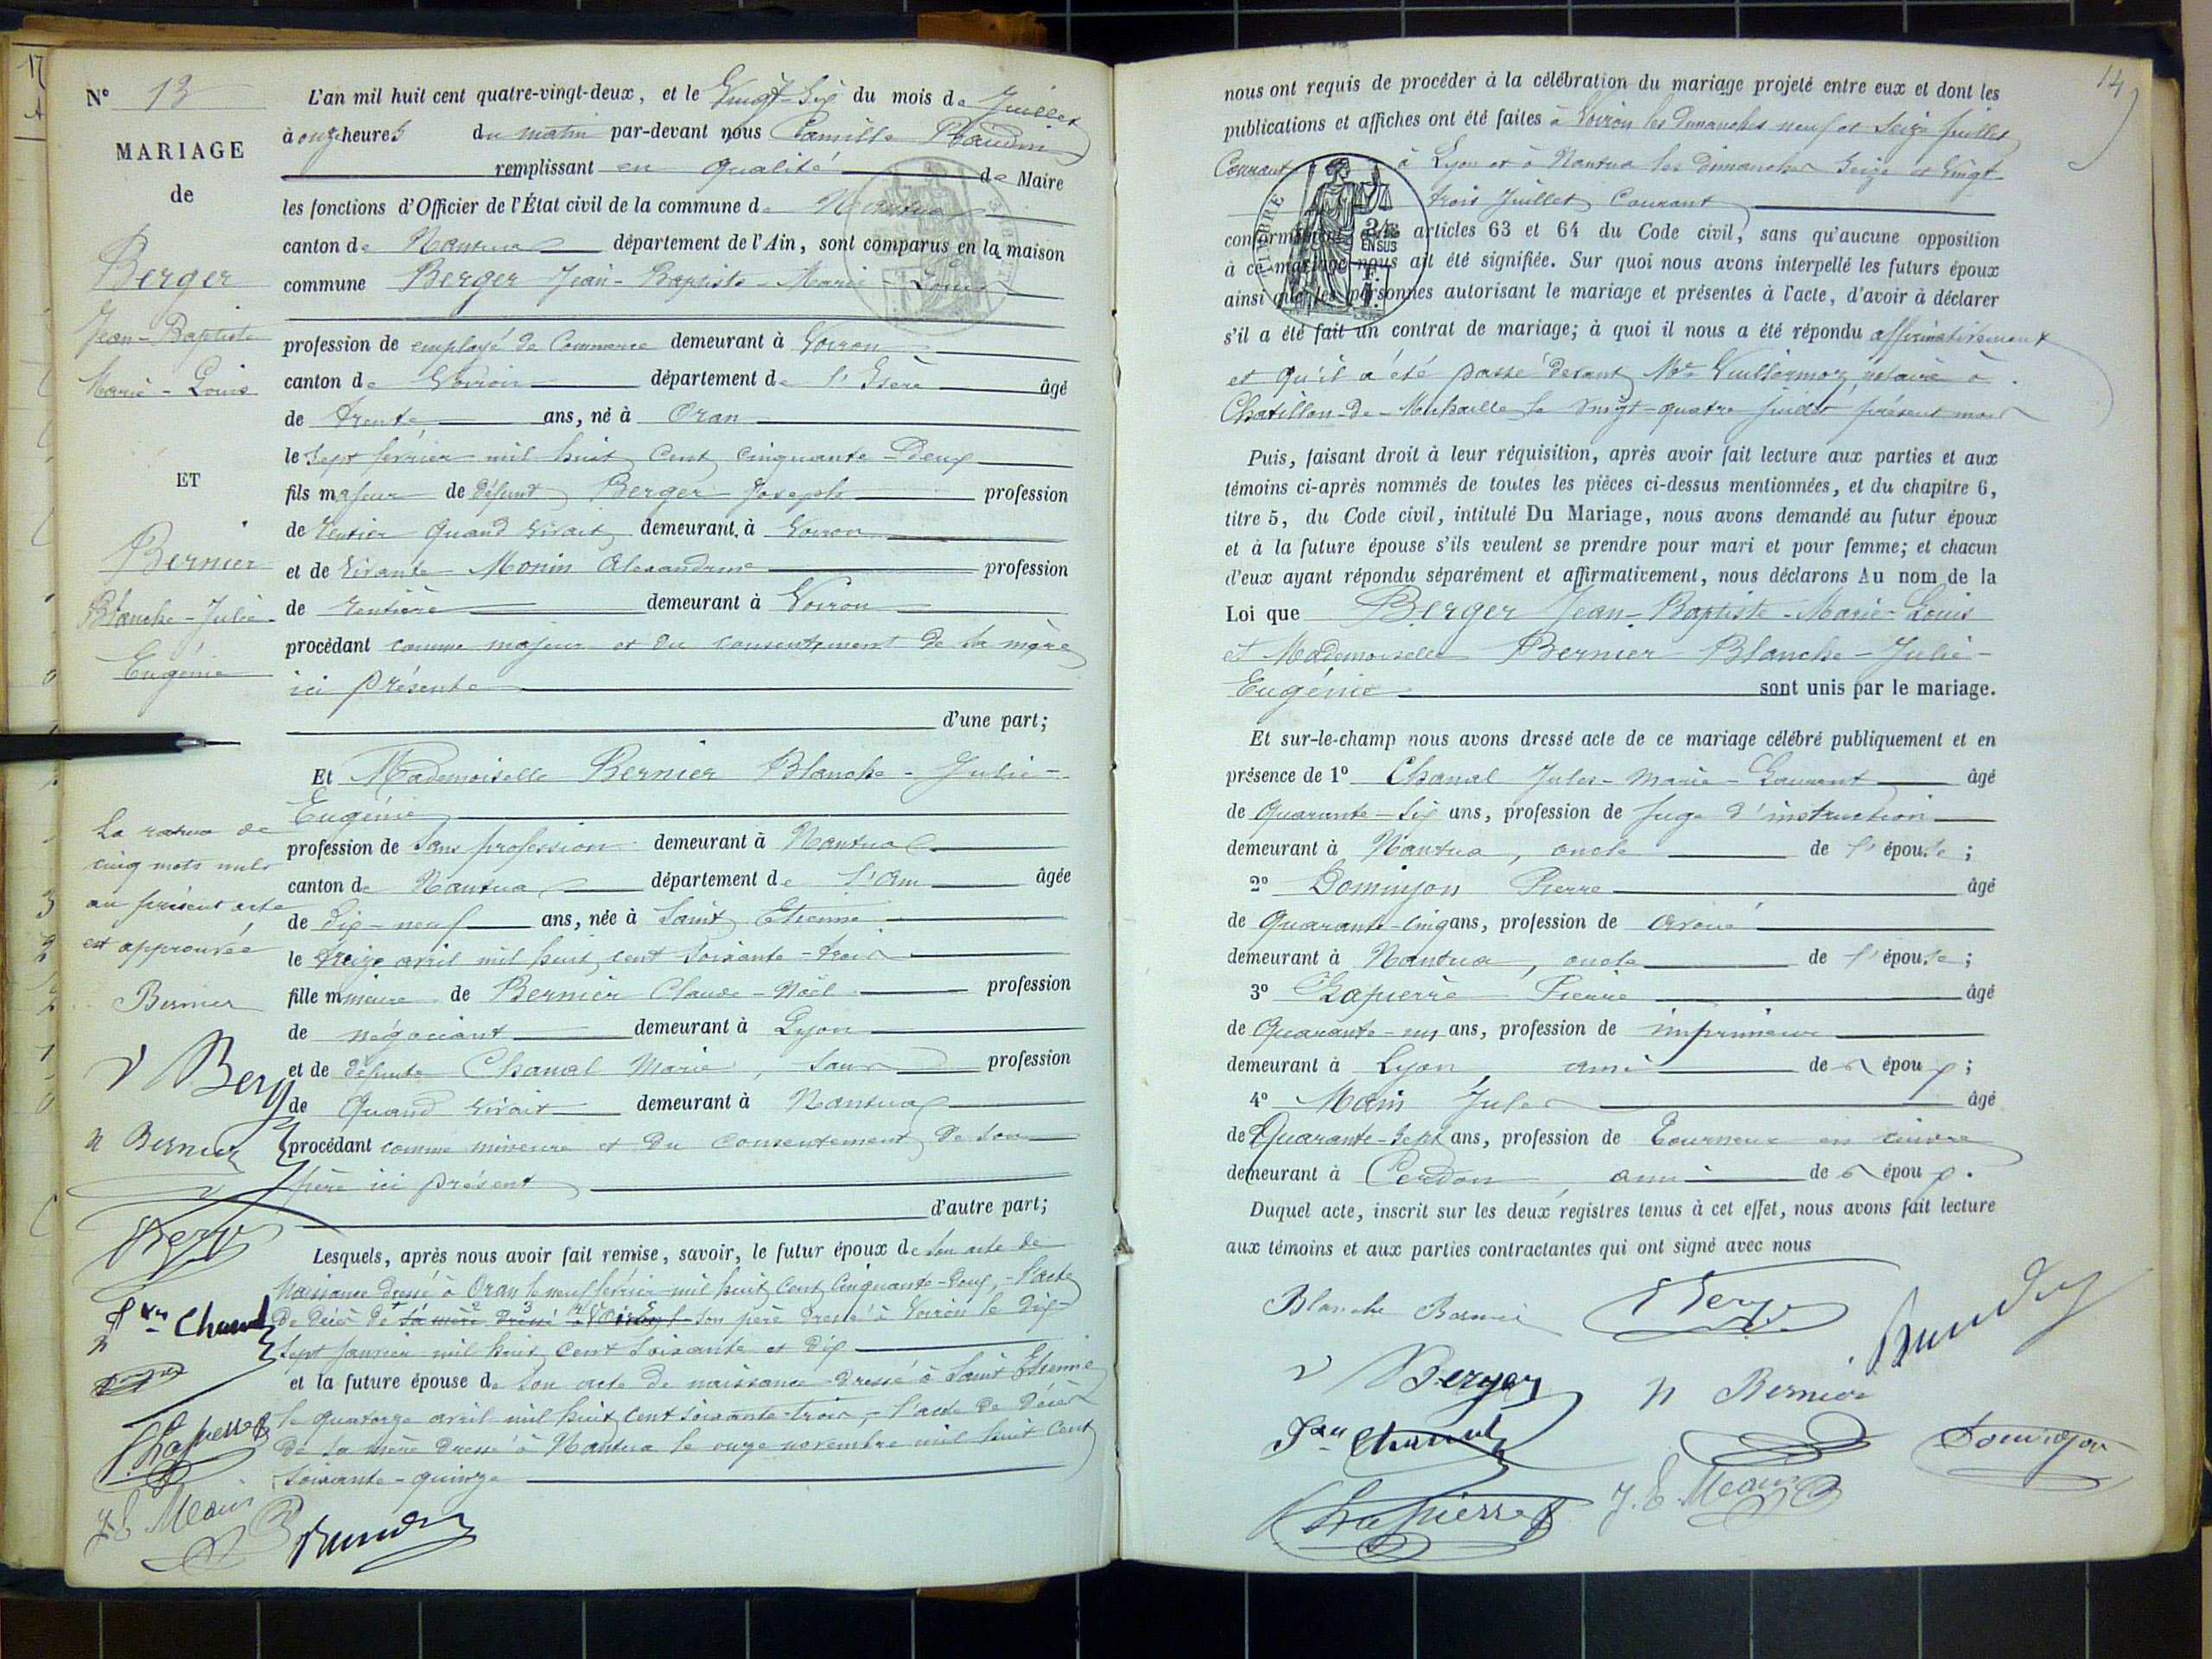 17
N° 13
MARIAGE
de
Berger
Jean-Baptiste
Marie-Louis
ET
Bernier
Blanche-Julie-
Eugénie
La rature de
cinq mots nuls
au présent acte
est approuvée
Bernier
V Berger
N Bernier
Berger
Chanal
Lapierre
J. E. Main
L'an mil huit cent quatre-vingt-deux, et le Vingt-Six du mois de Juillet
à onze heures du matin par-devant nous Camille Baudin
remplissant en qualité de Maire
les fonctions d'Officier de l'État civil de la commune de Nantua
canton de Nantua département de l'Ain, sont comparus en la maison
commune Berger Jean-Baptiste-Marie-Louis
profession de employé de Commerce demeurant à Voiron
canton de Voiron département de l'Isère âgé
de trente ans, né à Oran
le sept février mil huit cent cinquante-Deux
fils majeur de défunt Berger Joseph profession
de Rentier quand vivait demeurant à Voiron
et de vivante Monin Alexandrine profession
de rentière demeurant à Voiron
procédant comme majeur et du consentement de sa mère
ici présente
d'une part;
Et Mademoiselle Bernier Blanche-Julie-
Eugénie
profession de sans profession demeurant à Nantua
canton de Nantua département de l'Ain âgée
de dix-neuf ans, née à Saint Etienne
le treize avril mil huit cent soixante-trois
fille mineure de Bernier Claude-Noël profession
de négociant demeurant à Lyon
et de défunte Chanal Marie, sans profession
de quand vivait demeurant à Nantua
procédant comme mineure et du consentement de son
père ici présent
d'autre part;
Lesquels, après nous avoir fait remise, savoir, le futur époux de son acte de
Naissance dressé à Oran le neuf février mil huit cent cinquante-deux, - l'acte
de décès de sa mère dressé à Voiron son père dressé à Voiron le dix-
sept janvier mil huit cent soixante et dix
et la future épouse de son acte de naissance dressé à Saint Etienne
le quatorze avril mil huit cent soixante-trois, - l'acte de décès
de sa mère dressé à Nantua le onze novembre mil huit cent
soixante-quinze
14
nous ont requis de procéder à la célébration du mariage projeté entre eux et dont les
publications et affiches ont été faites à Voiron les dimanches neuf et seize juillet
Courant à Lyon et à Nantua les dimanches seize et vingt-
trois Juillet Courant
TIMBRE
2/10 EN SUS
conformément aux articles 63 et 64 du Code civil, sans qu'aucune opposition
à ce mariage nous ait été signifiée. Sur quoi nous avons interpellé les futurs époux
ainsi que les personnes autorisant le mariage et présentes à l'acte, d'avoir à déclarer
s'il a été fait un contrat de mariage; à quoi il nous a été répondu affirmativement
et qu'il a été passé devant Me Vuillermoz, notaire à
Chatillon-de-Michaille le vingt-quatre juillet présent mois
Puis, faisant droit à leur réquisition, après avoir fait lecture aux parties et aux
témoins ci-après nommés de toutes les pièces ci-dessus mentionnées, et du chapitre 6,
titre 5, du Code civil, intitulé Du Mariage, nous avons demandé au futur époux
et à la future épouse s'ils veulent se prendre pour mari et pour femme; et chacun
d'eux ayant répondu séparément et affirmativement, nous déclarons Au nom de la
Loi que Berger Jean-Baptiste-Marie-Louis
et Mademoiselle Bernier Blanche-Julie-
Eugénie sont unis par le mariage.
Et sur-le-champ nous avons dressé acte de ce mariage célébré publiquement et en
présence de 1° Chanal Jules-Marie-Laurent âgé
de Quarante-Six ans, profession de Juge d'instruction
demeurant à Nantua, oncle de l'épouse;
2° Dominjon Pierre âgé
de Quarante-cinq ans, profession de avoué
demeurant à Nantua, oncle de l'épouse;
3° Lapierre Pierre âgé
de Quarante-un ans, profession de imprimeur
demeurant à Lyon ami de l'époux;
4° Main Jules âgé
de Quarante-Sept ans, profession de Tourneur en cuivre
demeurant à Cerdon ami de l'époux.
Duquel acte, inscrit sur les deux registres tenus à cet effet, nous avons fait lecture
aux témoins et aux parties contractantes qui ont signé avec nous
Blanche Bernier
Berger
V Berger
N Bernier
Chanal
Dominjon
Lapierre
J. E. Main